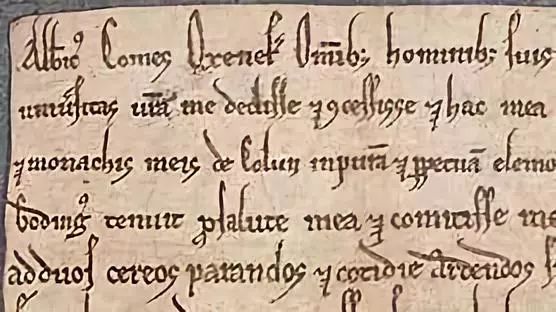 Albic⁹ Comes Oxenef̄ Om̄ib; hominib; suis
uniu̾sitas ur̄a me dedisse ⁊ ꝯcessisse ⁊ hac mea
⁊ monachis meis de Colun in purā ⁊ ꝑpetuā elemo
boding⁹ tenuit ꝓ salute mea ⁊ comitisse me
ad duos cereos parandos ⁊ cotidie ardendos